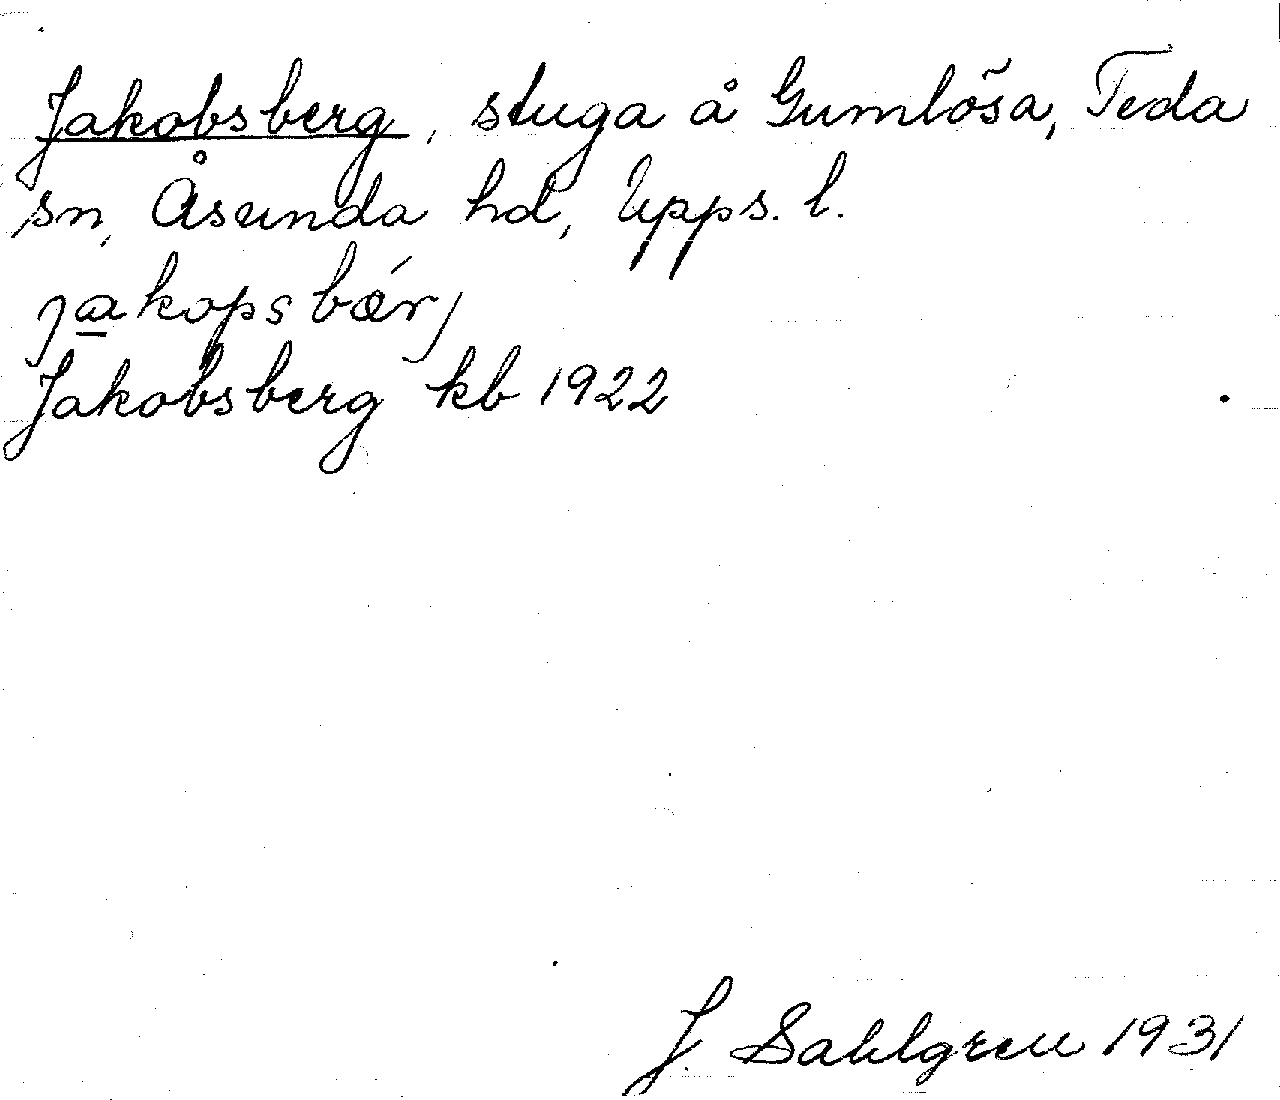 Jakobsberg, stuga å Gumlösa, Teda
sn, Åsunda hd, Upps. l.
jakopsbæŕj
Jakobsberg kb 1922
J. Sahlgren 1931